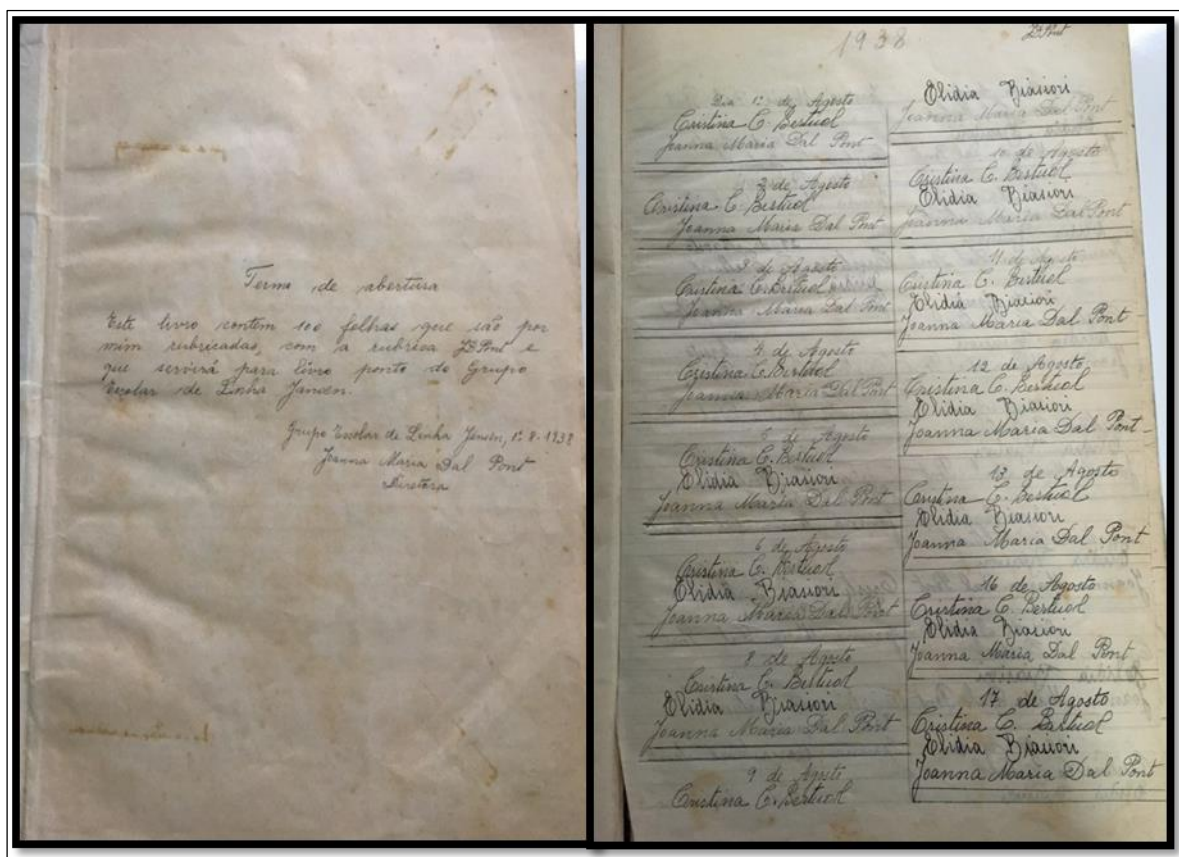 Termo de abertura
Este livro contém 100 folhas que são por
mim rubricadas, com a rubrica JDPont e
que servirá para livro ponto do Grupo
Escolar de Linha Jansen.
Grupo Escolar de Linha Jansen, 1º-8-1938
Joanna Maria Dal Pont
Diretora
1938
JDPont
Dia 1º de Agosto
Cristina C. Bertuol
Joanna Maria Dal Pont
2 de Agosto
Cristina C. Bertuol
Joanna Maria Dal Pont
3 de Agosto
Cristina C. Bertuol
Joanna Maria Dal Pont
4 de Agosto
Cristina C. Bertuol
Joanna Maria Dal Pont
5 de Agosto
Cristina C. Bertuol
Elidia Biasiori
Joanna Maria Dal Pont
6 de Agosto
Cristina C. Bertuol
Elidia Biasiori
Joanna Maria Dal Pont
8 de Agosto
Cristina C. Bertuol
Elidia Biasiori
Joanna Maria Dal Pont
9 de Agosto
Cristina C. Bertuol
Elidia Biasiori
Joanna Maria Dal Pont
10 de Agosto
Cristina C. Bertuol
Elidia Biasiori
Joanna Maria Dal Pont
11 de Agosto
Cristina C. Bertuol
Elidia Biasiori
Joanna Maria Dal Pont
12 de Agosto
Cristina C. Bertuol
Elidia Biasiori
Joanna Maria Dal Pont
13 de Agosto
Cristina C. Bertuol
Elidia Biasiori
Joanna Maria Dal Pont
16 de Agosto
Cristina C. Bertuol
Elidia Biasiori
Joanna Maria Dal Pont
17 de Agosto
Cristina C. Bertuol
Elidia Biasiori
Joanna Maria Dal Pont